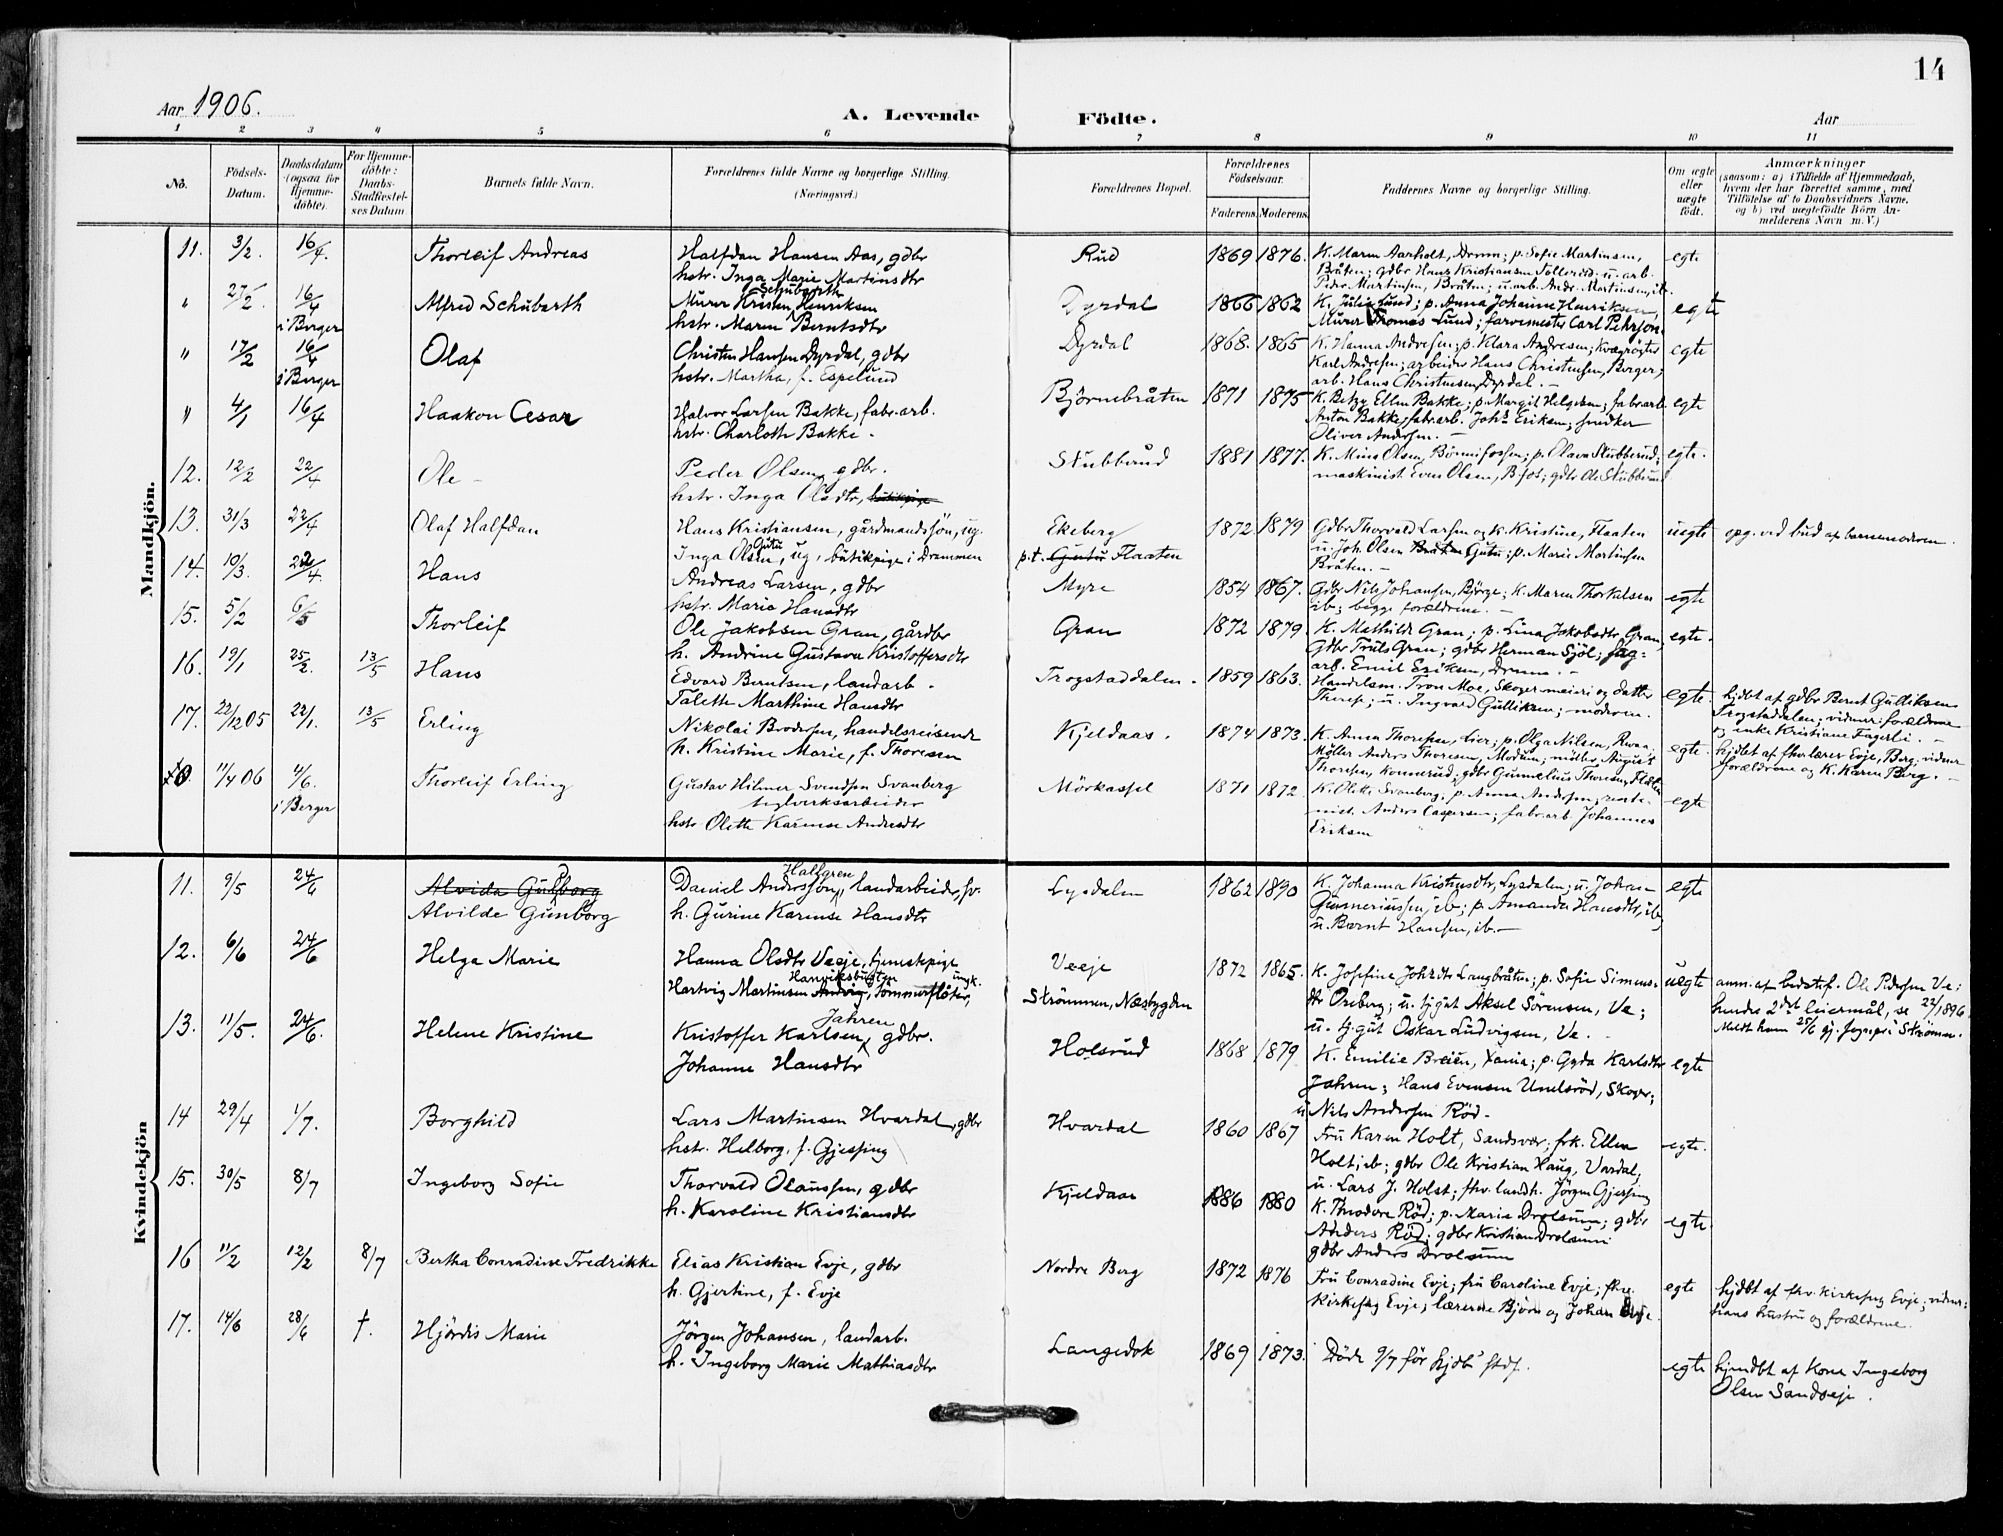 14
Aar 1906.
A. Levende Födte.
Aar
1 2 3 4 5 6 7 8 9 10 11
No.
Födsels-Datum.
Daabsdatum (ogsaa for Hjemmedöbte).
For Hjemmedöbte: Daabs-Stadfæstelses Datum
Barnets fulde Navn.
Forældrenes fulde Navne og borgerlige Stilling. (Næringsvei.)
Forældrenes Bopæl.
Forældrenes Födselsaar.
Faderens. Moderens.
Faddernes Navne og borgerlige Stilling.
Om ægte eller uægte födt.
Anmærkninger
(saasom: a) i Tilfælde af Hjemmedaab, hvem der har forrettet samme, med Tilföielse af to Daabsvidners Navne, og b) ved uægtefödte Börn Anmelderens Navn m.V.)
Mandkjön.
11. 3/2. 16/4. Thorleif Andreas
Halfdan Hansen Aas, gdbr
hstr. Inga Marie Martinsdtr
Rud 1869 1876.
K. Maren Aarholt, Dramn; p. Sofie Martinsen,
Bråten; gdbr Hans Kristiansen Tollerud; u. arb.
Peder Martinsen, Bråten; u. arb. Andr. Martinsen, ib.
egte
" 27/2. 16/4 i Berger Alfred Schubarth
Schubarth
Murer Kristen Henriksen
hstr. Maren Berntsdtr
Dyrdal 1866 1862
K. Julie Lund; p. Anna Johanne Henriksen,
Murer Thomas Lund; farvemester Carl Pehrson.
egte
" 17/2 16/4 i Berger Olaf
Christen Hansen Dyrdal, gdbr
hstr. Martha, f. Espelund
Dyrdal 1868. 1865
K. Hanna Andresen; p. Klara Andresen; kvægrøgter
Karl Andresen; arbeider Hans Christensen, Berger;
arb. Hans Christensen, Dyrdal. -
egte
" 4/1 16/4 Haakon Cesar
Halvor Larsen Bakke, fabr. arb.
hstr. Charlotte Bakke -
Björnebråten 1871 1875
K. Betzy Ellen Bakke; p. Margit Helgesen; fabr. arb.
Anton Bakke, fabr. arb. Johs Eriksen; snedker
Oliver Andersen. -
egte
12. 12/2 22/4 Ole -
Peder Olsen, gdbr.
hstr. Inga Olsdtr,
Stubberud 1881 1877.
K. Mina Olsen, Bönnifossen; p. Olava Stubberud;
maskinist Even Olsen, B.fos; gdbr Ole Stubberud
egte.
13. 31/3 22/4 Olaf Halfdan
Hans Kristiansen, gårdmandssön, ug.
Inga Olsen Gutu, ug, butikpige i Drammen
Ekeberg
p.t. Gutu Flaaten 1872 1879
Gdbr Thorvald Larsen og k. Kristine, Flaaten
u. Joh. Olsen Bråten Gutu; p. Marie Martinsen
Bråten. -
uegte
opg. ved bud af barnemoderen.
14. 10/3. 22/4. Hans
Andreas Larsen, gdbr
hstr. Marie Hansdtr
Myre 1854 1867.
Gdbr Nils Johansen, Björge; K. Maren Thorkelsen
ib; begge forældrene. -
egte
15. 5/2 6/5 Thorleif
Ole Jakobsen Gran, gårdbr
h. Andrine Gustava Kristoffersdtr
Gran 1872 1879.
K. Mathilde Gran; p. Lina Jakobsdtr Gran,
Gdbr Truls Gran; gdbr Herman Sjöl; sag-
arb. Emil Eriksen, Dramn. -
egte.
16. 19/1 25/2. 13/5 Hans
Edvard Berntsen, landarb.
Talette Marthine Hansdtr
Trogstaddalen. 1859 1863.
Handelsm. Tron Moe, Skoger meieri og datter
Therese; u. Ingvald Gulliksen; moderen.
egte.
hjdbt af gdbr Bernt Gulliksen
Trogstaddalen; vidner: forældrene
og enke Kristiane Fagerli. -
17. 22/12 05 22/1. 13/5 Erling
Nikolai Brodersen, handelsreisende
h. Kristine Marie, f. Thoresen
Kjeldaas. 1874 1873.
K. Anna Thoresen, Lier; p. Olga Nilsen, Rwaa;
Møller Anders Thoresen, Modum; möller August
Thoresen, Konnerud; gdbr Gunnelius Thoresen,
egte.
hjdbt af fhv. lærer Evje, Berg; vidner
forældrene og K. Karen Berg. -
11/4 06 4/6. i Berger Thorleif Erling
Gustav Hilmer Svendsen Svanberg
teglverksarbeider
hstr Olette Karense Andersdtr
Mörkassel 1871 1872.
K. Olette Svanberg; p. Anna Andersen;
Anders Caspersen; fabr. arb. Johannes
Eriksen
egte
Kvindekjön
11. 9/5 24/6
Alvida Gulborg
Alvilde Gunborg
Hallgren
Daniel Andersson, landarbeider, sv.
h. Gurine Karense Hansdtr
Lysdalen 1862 1890
K. Johanna Kristiansdtr, Lysdalen; u. Johan
Gunneriussen, ib; p. Amanda Hansdtr, ib,
u. Bernt Hansen, ib. -
egte
12. 6/6 24/6 Helga Marie
Hanna Olsdtr Veeje, tjenestpige
Hartvig Martinsen, tömmerflöter, ungk.
Veeje
Strömmen, Næsbygden 1872 1865.
K. Josefine Johsdtr Langbråten; p. Sofie Simens-
dtr Oseberg; u. tjgut Aksel Sörensen, Ve;
u. tj.gut Oskar Ludvigsen, Ve. -
uegte
anm. af bedstef. Ole Pedersen Ve;
hendes 2det leiermål, se 22/1896
Meldt ham 25/6
13. 11/5. 24/6. Helene Kristine
Jahren
Kristoffer Karlsen, gdbr.
Johanne Hansdtr
Holsrud 1868 1879
K. Emilie Breien, Xania; p. Gyda Karlsdtr
Jahren; Hans Evensen Unelsröd, Skoger;
u Nils Andersen Röd -
egte
14 29/4 1/7. Borghild
Lars Martinsen Hvardal, gdbr
hstr. Helborg, f. Gjessing
Hvardal 1860 1867
Fru Karen Holt, Sandsvær; frk. Ellen
Holt, ib; gdbr Ole Kristian Haug, Vardal;
u. Lars J. Holst; fhv. landh. Jörgen Gjessing
egte.
15. 30/5 8/7 Ingeborg Sofie
Thorvald Olaussen, gdbr
h. Karoline Kristiansdtr
Kjeldaas 1886 1880
K. Theodora Röd; p. Maria Drolsum; gdbr
Anders Röd; gdbr Kristian Drolsum
gdbr Anders Drolsum
egte.
16 11/2 12/2 8/7 Bertha Conradine Fredrikke
Elias Kristian Evje, gdbr
h. Gjertine, f. Evje
Nordre Berg 1872 1876
Fru Conradine Evje; fru Caroline Evje; fhv.
Kirkesgr Evje; lærerne Björn og Johan Evje.
egte
hjdbt af fhv. kirkesgr Evje; vidner:
hans hustru og forældrene.
17. 14/6 28/6 †. Hjördis Marie
Jörgen Johansen, landarb.
h. Ingeborg Marie Mathiasdtr
Langedok 1869 1873.
Döde 9/7 för hjdb. stdf.
egte
hjemdbt af Kone Ingeborg
Olsen Sandseje.